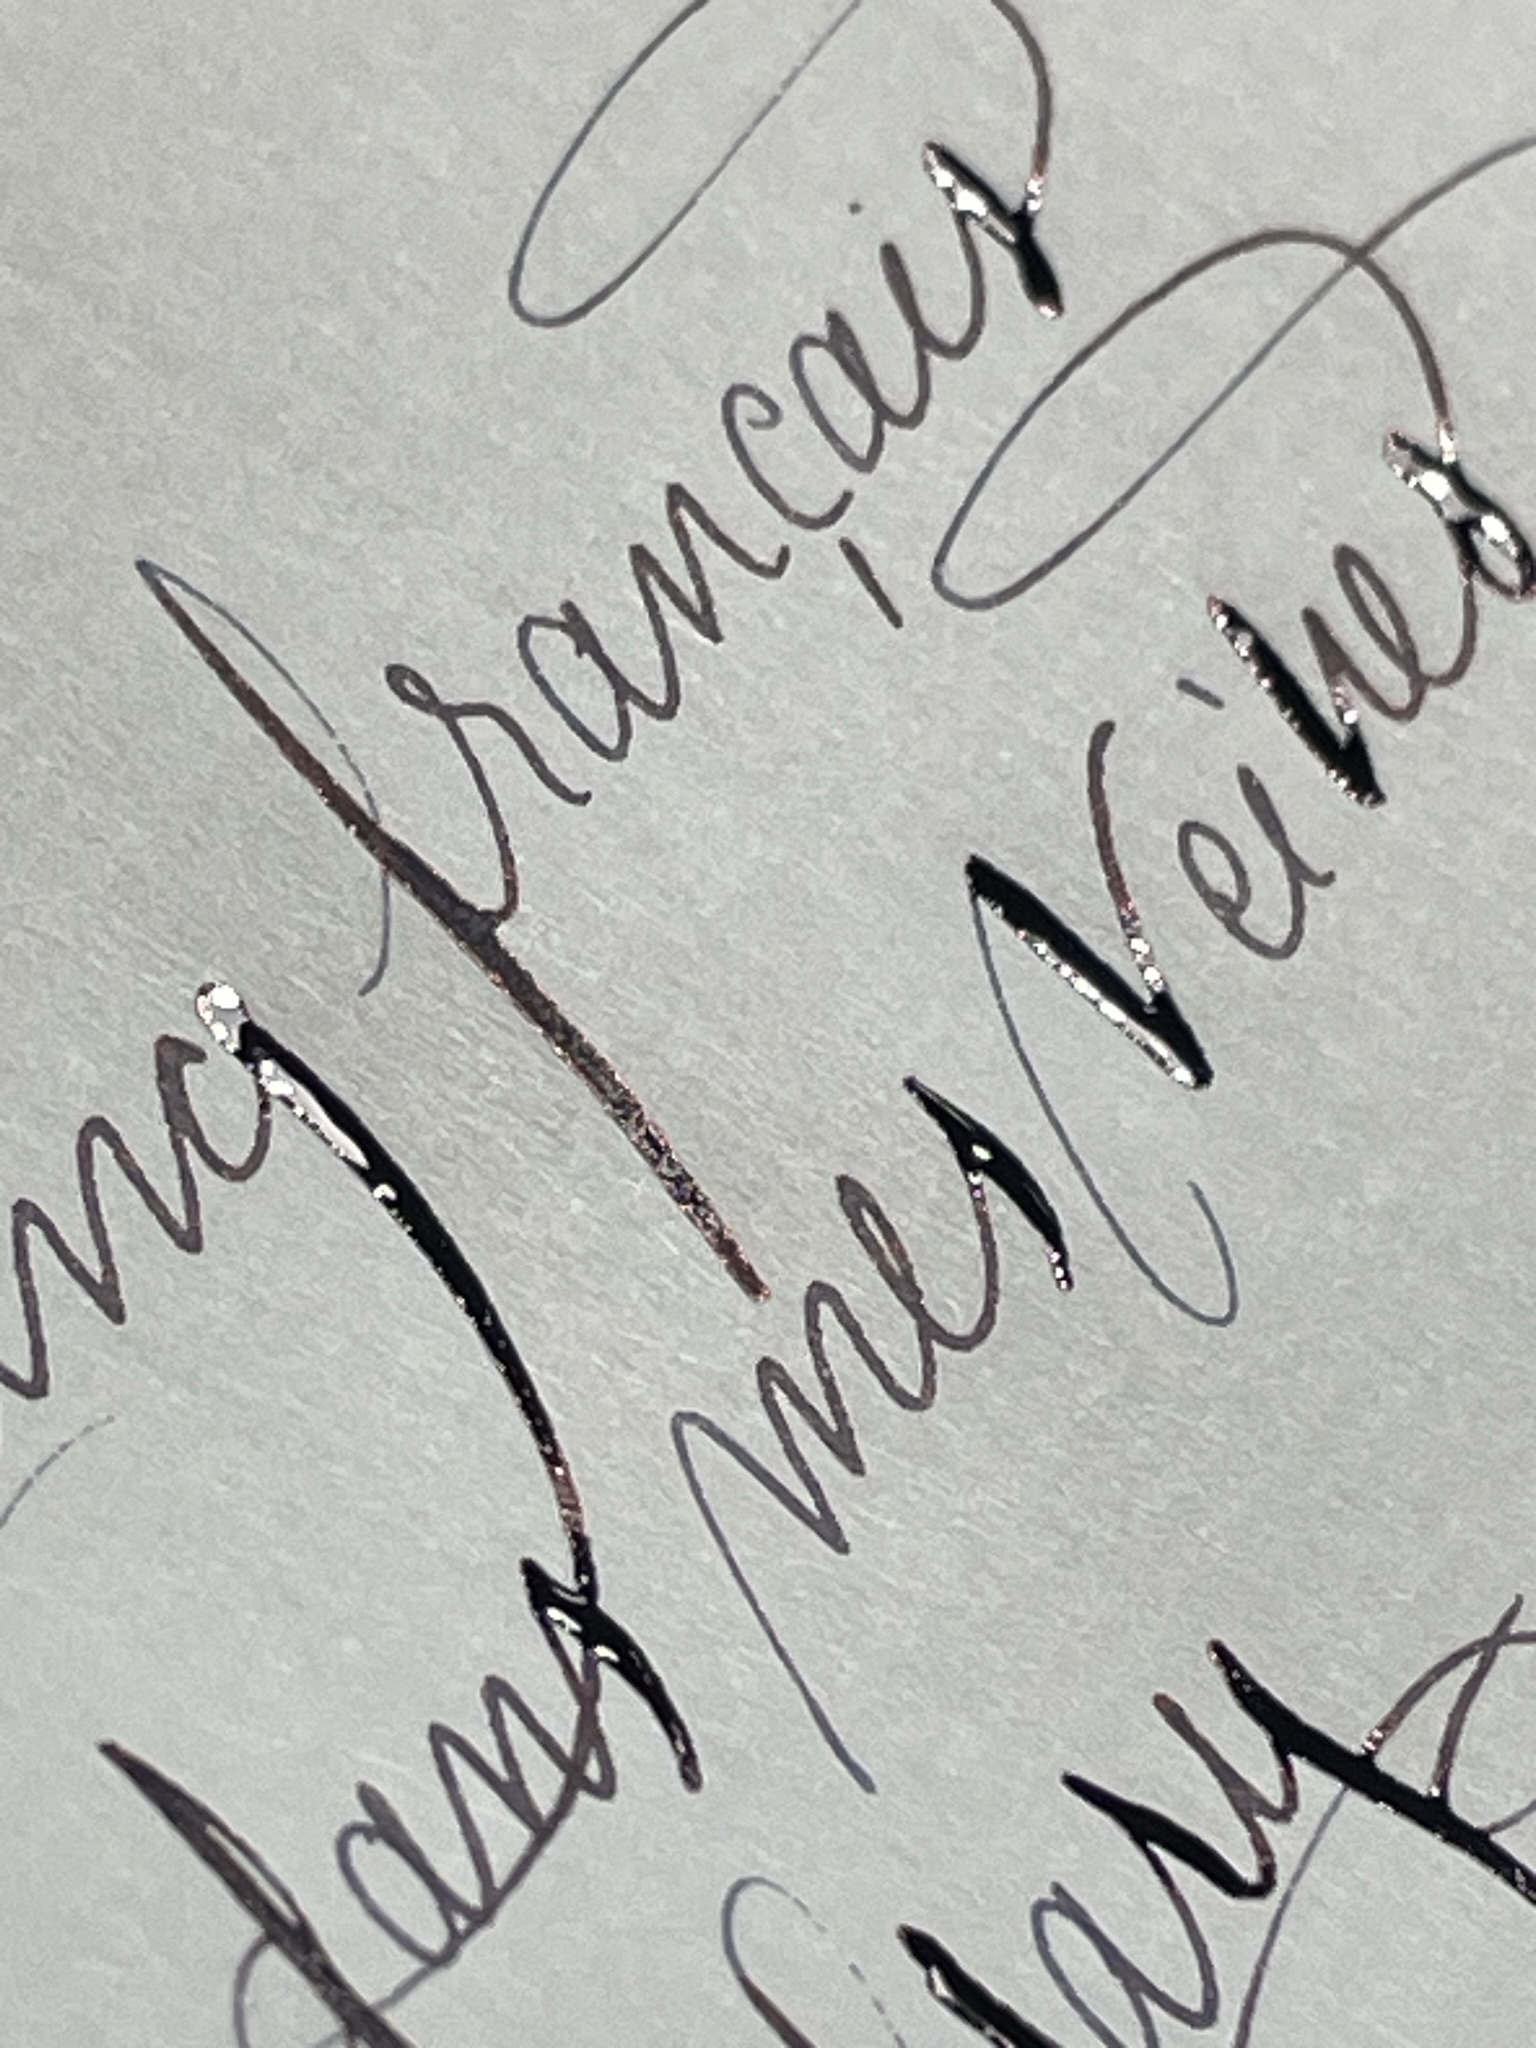 ng français
dans mes Veines